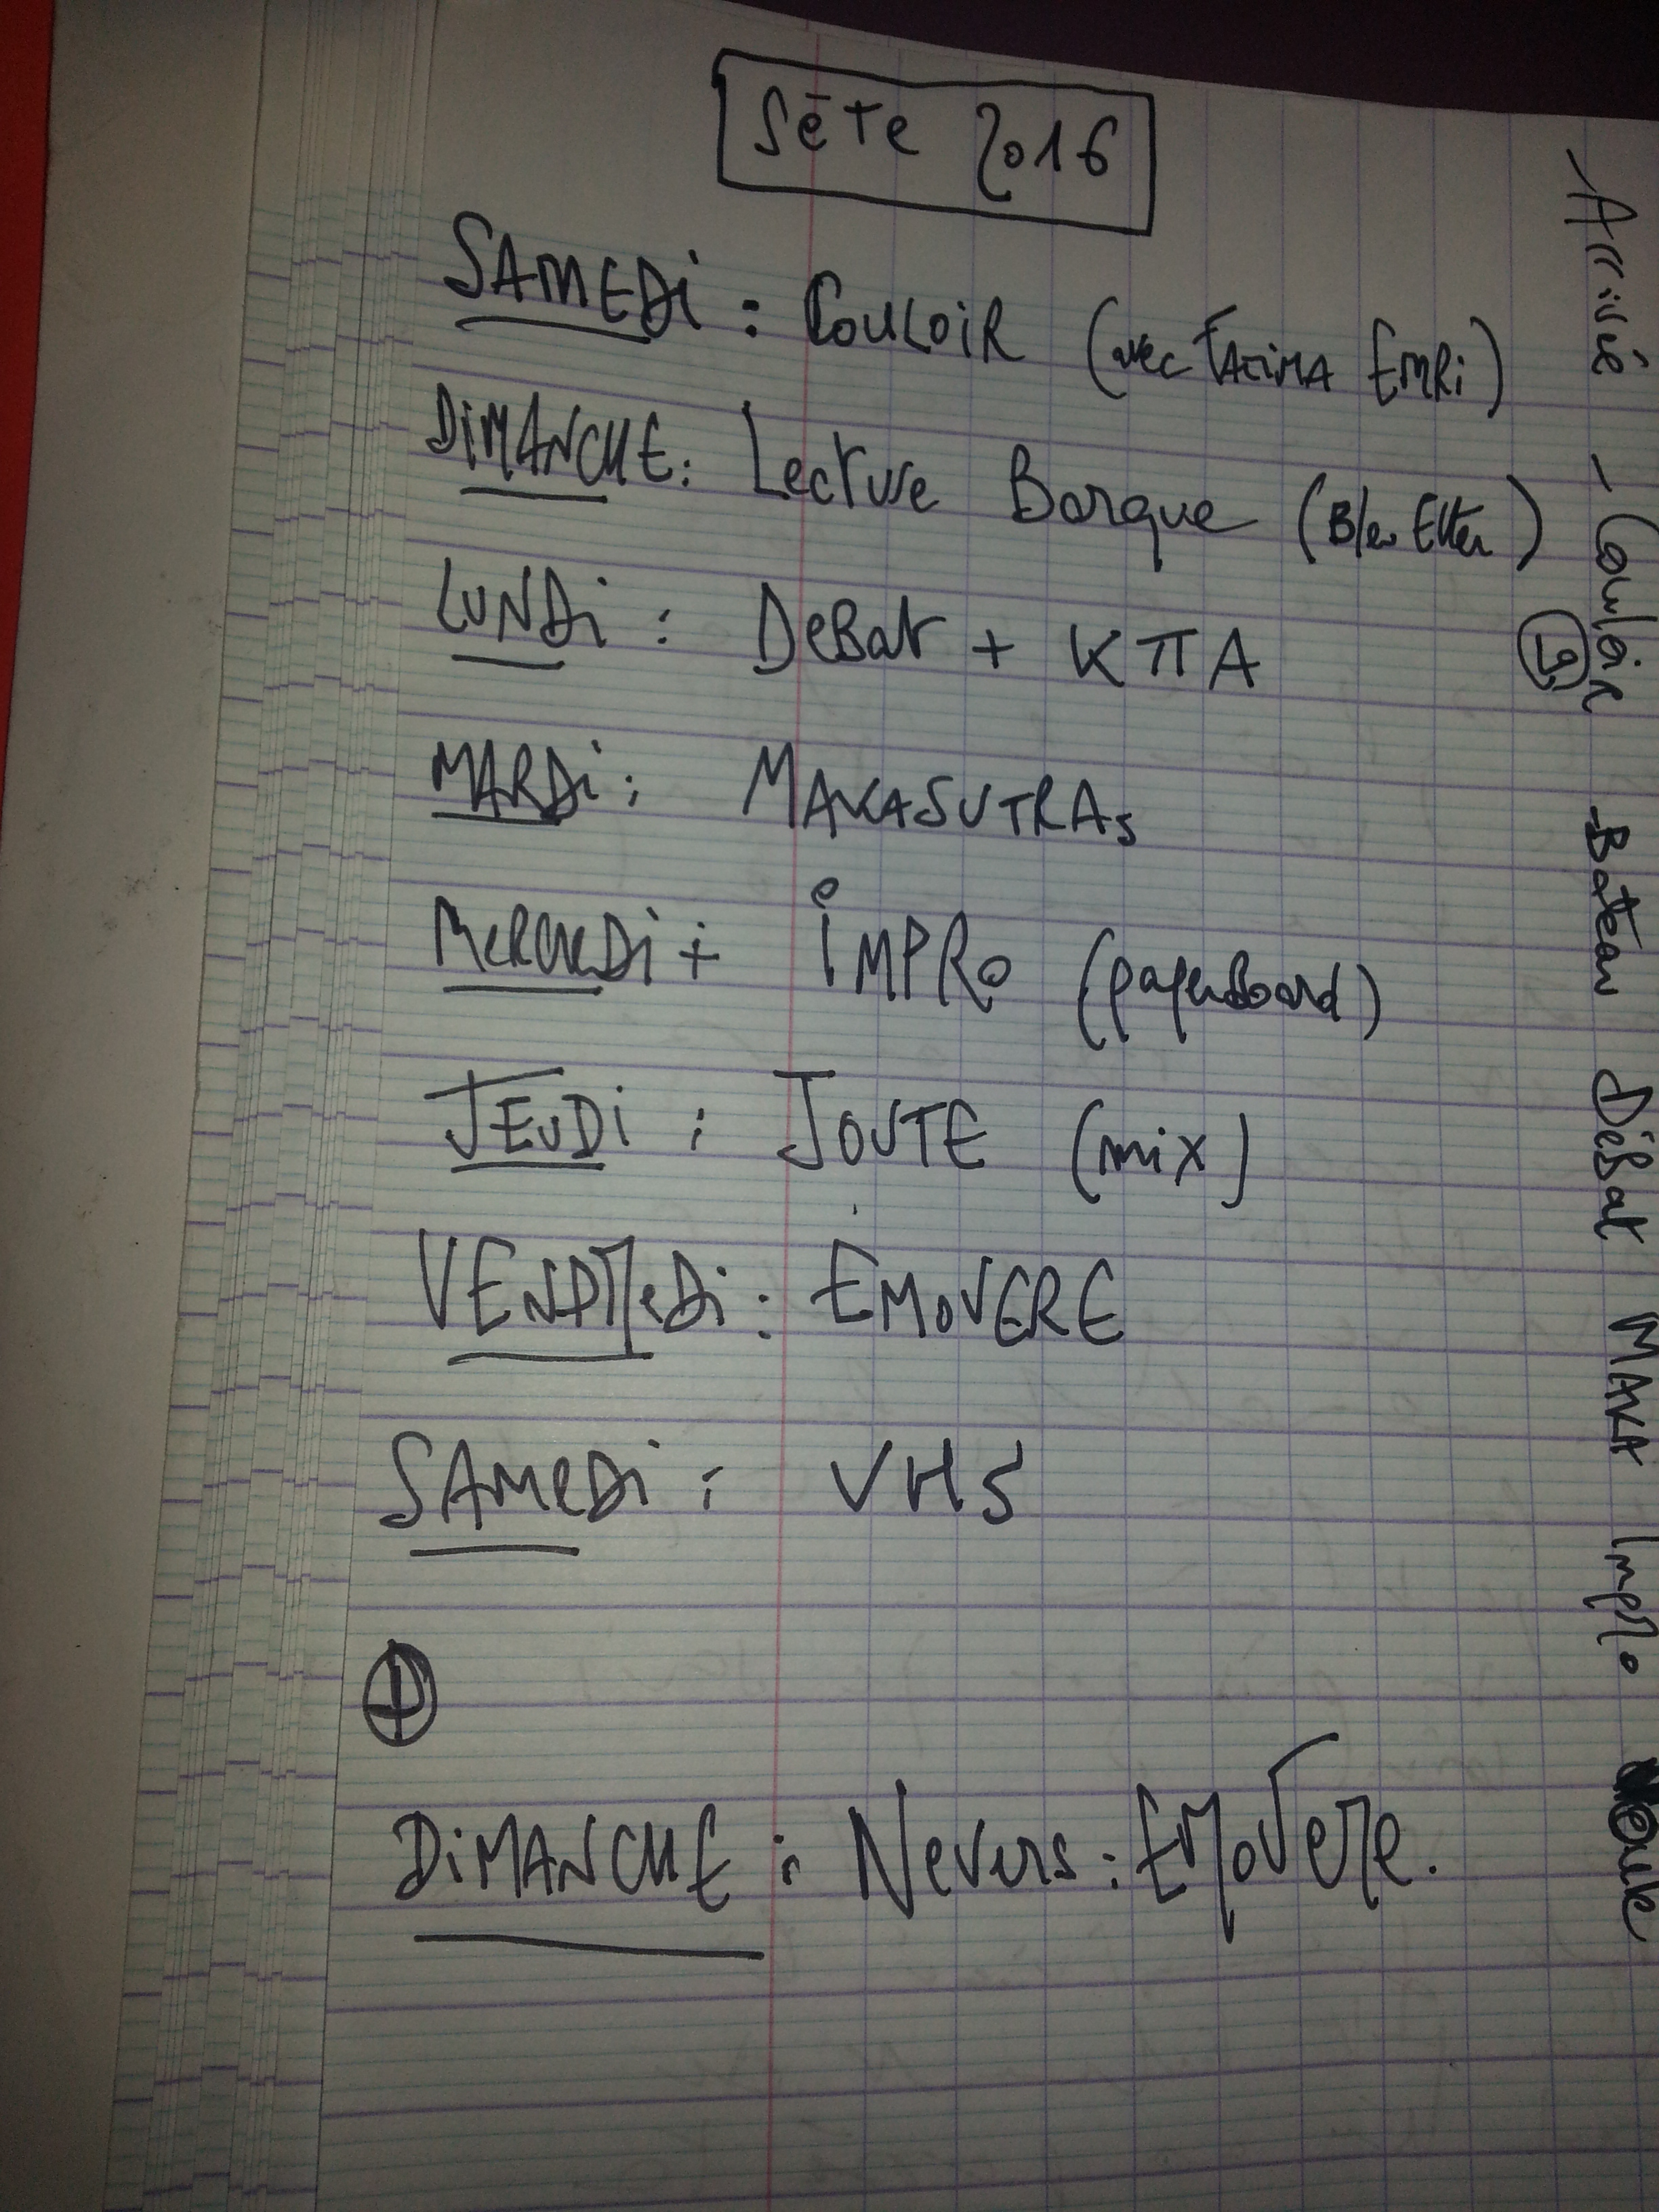 Sète 2016
SAMEDi : COULOIR (avec FATIMA EMRi)
DIMANCHE : Lecture Barque (Bleu Etter)
LUNDi : DEBAT + KTTA
MARDi : MAKASUTRAs
MERCREDi : IMPRO (paperBoard)
JEUDi : JOUTE (mix)
VENDREDi : EMOVERE
SAMeDi : VHS
DiMANCHE : Nevers : EMOVERE.
- Arrivée - Couloir - Bateau DéBat MAKA Impro